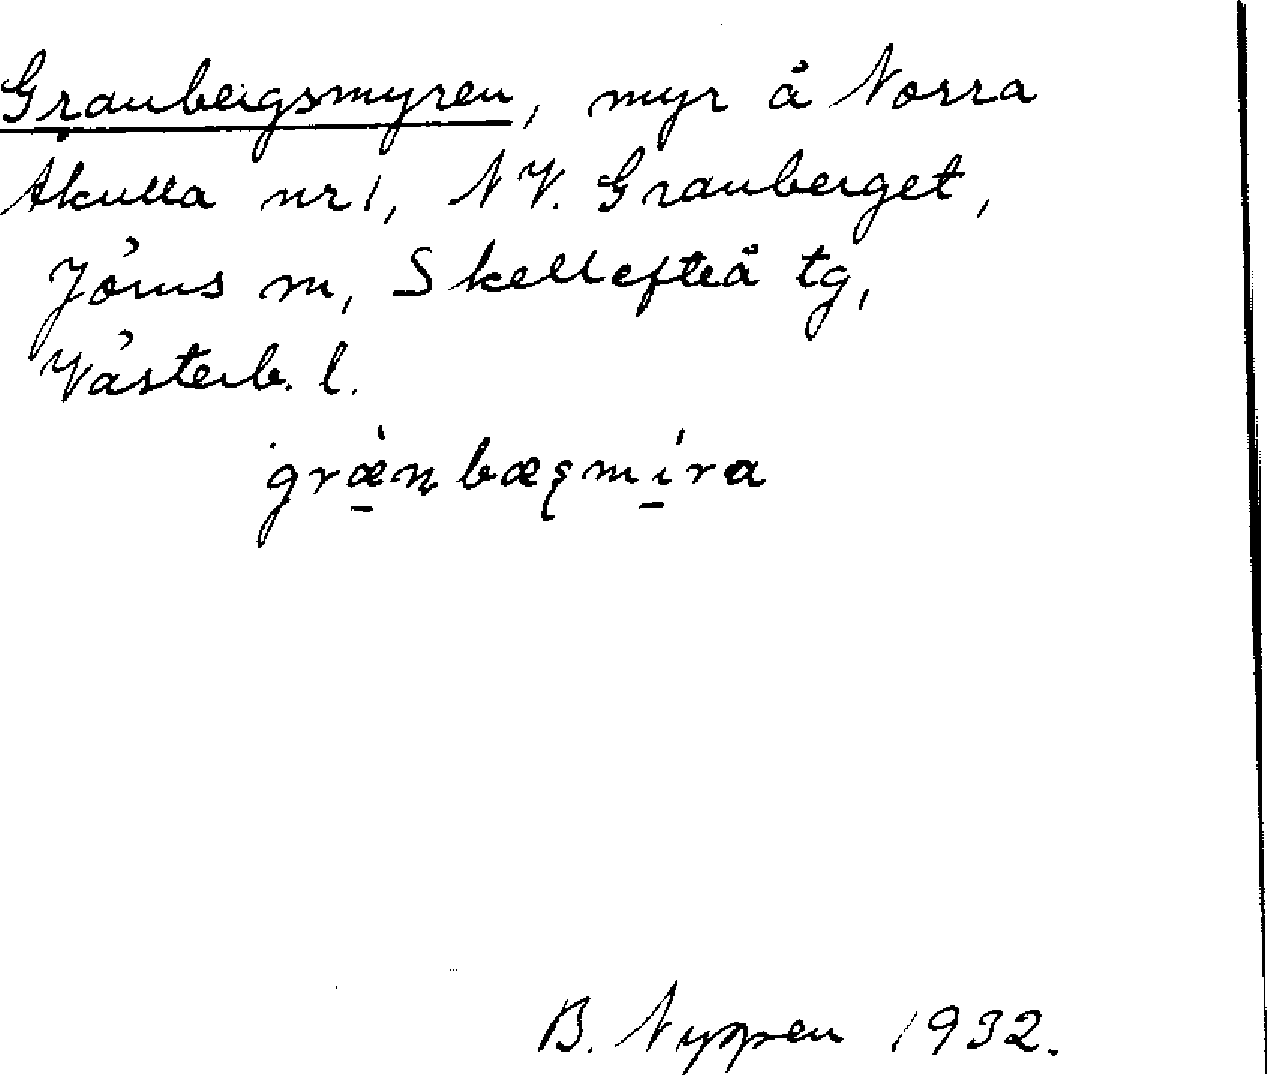 Granbergsmyren, myr å Norra
Åkulla nr 1, NV. Granberget,
Jörns sn, Skellefteå tg,
Västerb. l.
græ̀n̥bæʂmíra
B. Nyppen 1932.